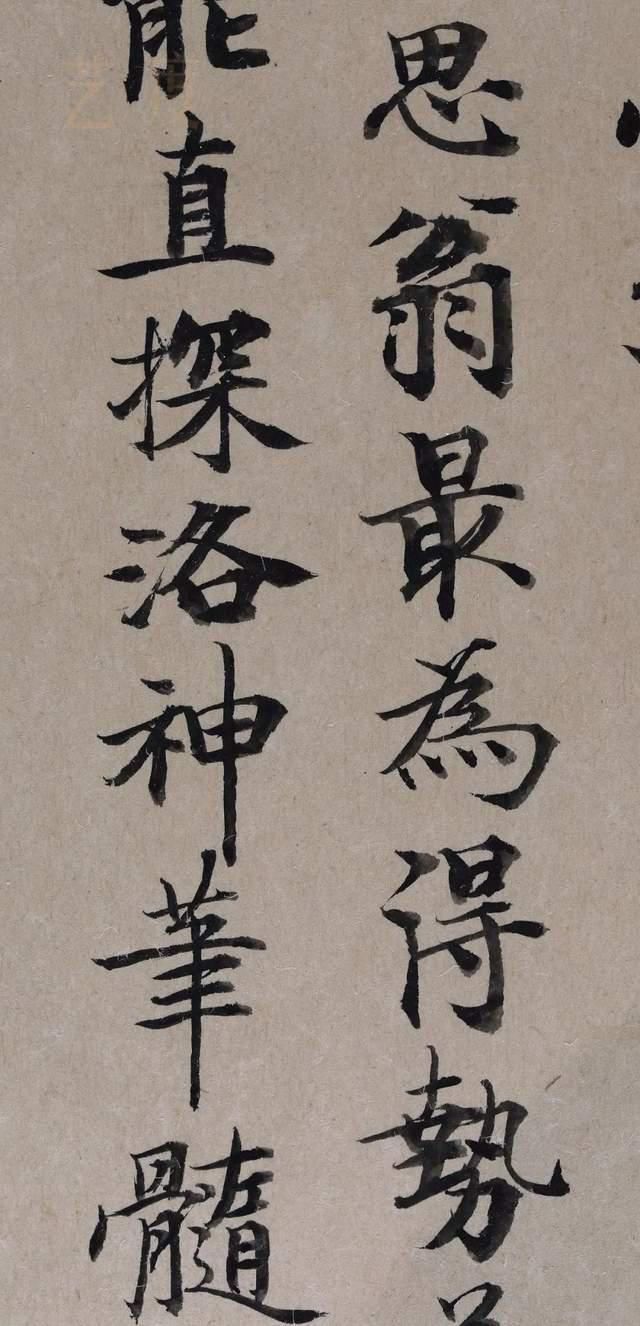 思翁最為得勢
能直探洛神筆髓